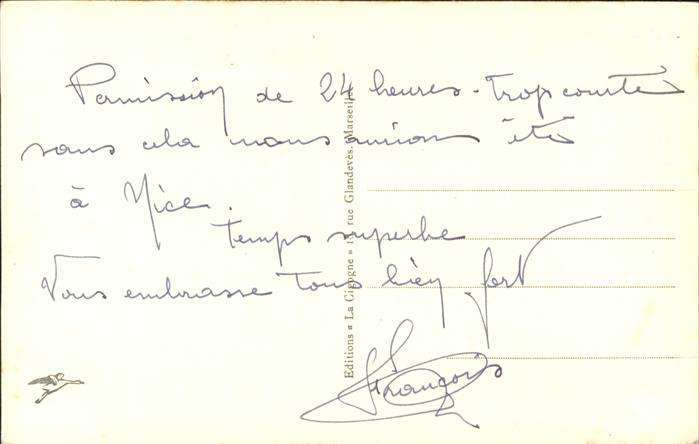 Permission de 24 heures - trop courte
sans cela nous aurions été
à Nice.
temps superbe
Vous embrasse tous bien fort
François
Editions « La Cigogne » rue Glandevès. Marseille